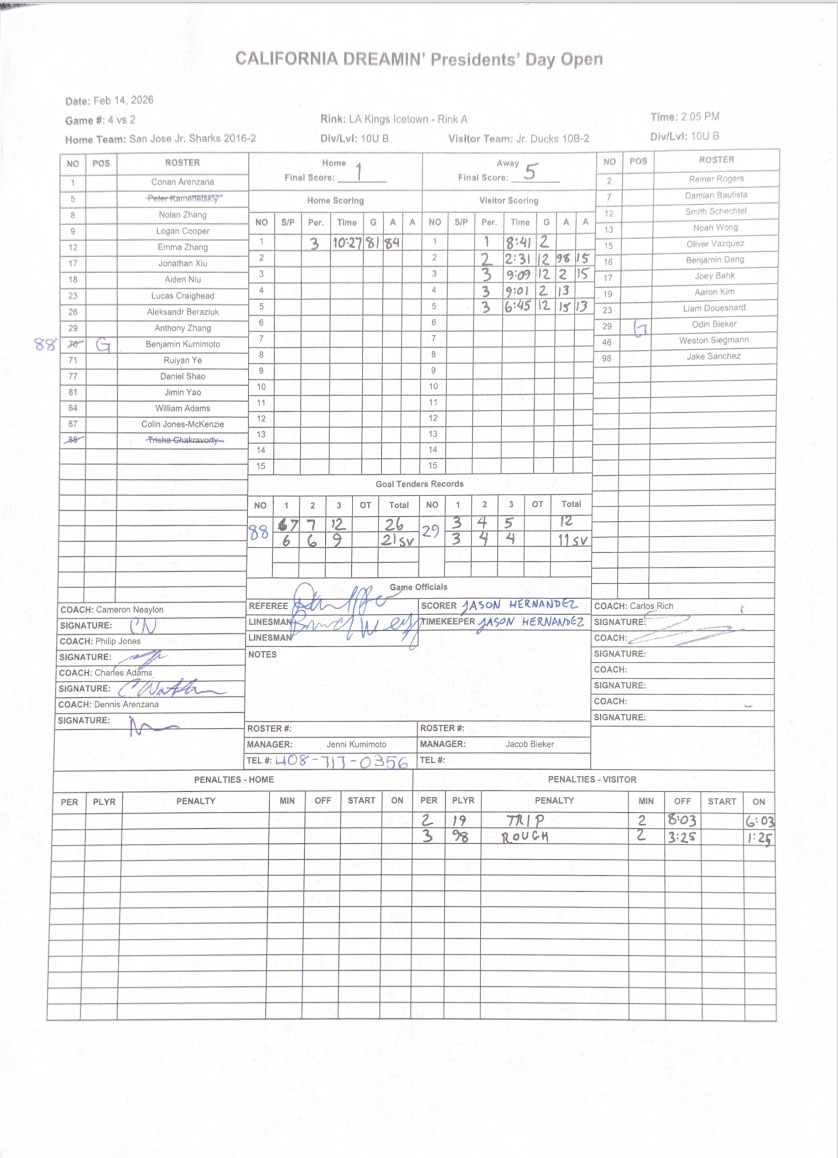 CALIFORNIA DREAMIN' Presidents' Day Open
Date: Feb 14, 2026
Game #: 4 vs 2 Rink: LA Kings Icetown - Rink A Time: 2:05 PM
Home Team: San Jose Jr. Sharks 2016-2 Div/Lvl: 10U B Visitor Team: Jr. Ducks 10B-2 Div/Lvl: 10U B
NO POS ROSTER
1 Conan Arenzana
5 Peter Kamenetskiy
8 Nolan Zhang
9 Logan Cooper
12 Emma Zhang
17 Jonathan Xiu
18 Aiden Niu
23 Lucas Craighead
26 Aleksandr Beraziuk
29 Anthony Zhang
88 70 G Benjamin Kumimoto
71 Ruiyan Ye
77 Daniel Shao
81 Jimin Yao
84 William Adams
87 Colin Jones-McKenzie
88 Trisha Chakravorty
Home Final Score: 1
Away Final Score: 5
Home Scoring
NO S/P Per. Time G A A
1 3 10:27 81 84
2
3
4
5
6
7
8
9
10
11
12
13
14
15
Visitor Scoring
NO S/P Per. Time G A A
1 1 8:41 2
2 2 2:31 12 98 15
3 3 9:09 12 2 15
4 3 9:01 2 13
5 3 6:45 12 15 13
6
7
8
9
10
11
12
13
14
15
NO POS ROSTER
2 Reiner Rogers
7 Damian Bautista
12 Smith Schechtel
13 Noah Wong
15 Oliver Vazquez
16 Benjamin Dang
17 Joey Bahk
19 Aaron Kim
23 Liam Douesnard
29 G Odin Bieker
46 Weston Siegmann
98 Jake Sanchez
Goal Tenders Records
NO 1 2 3 OT Total NO 1 2 3 OT Total
88 7 7 12 26 29 3 4 5 12
6 6 9 21 SV 3 4 4 11 SV
Game Officials
REFEREE SCORER JASON HERNANDEZ
LINESMAN TIMEKEEPER JASON HERNANDEZ
LINESMAN
NOTES
COACH: Cameron Neaylon
SIGNATURE: CN
COACH: Philip Jones
SIGNATURE:
COACH: Charles Adams
SIGNATURE:
COACH: Dennis Arenzana
SIGNATURE:
COACH: Carlos Rich
SIGNATURE:
COACH:
SIGNATURE:
COACH:
SIGNATURE:
COACH:
SIGNATURE:
ROSTER #: ROSTER #:
MANAGER: Jenni Kumimoto MANAGER: Jacob Bieker
TEL #: 408-717-0356 TEL #:
PENALTIES - HOME
PER PLYR PENALTY MIN OFF START ON
PENALTIES - VISITOR
PER PLYR PENALTY MIN OFF START ON
2 19 TRIP 2 8:03 6:03
3 98 ROUGH 2 3:25 1:25